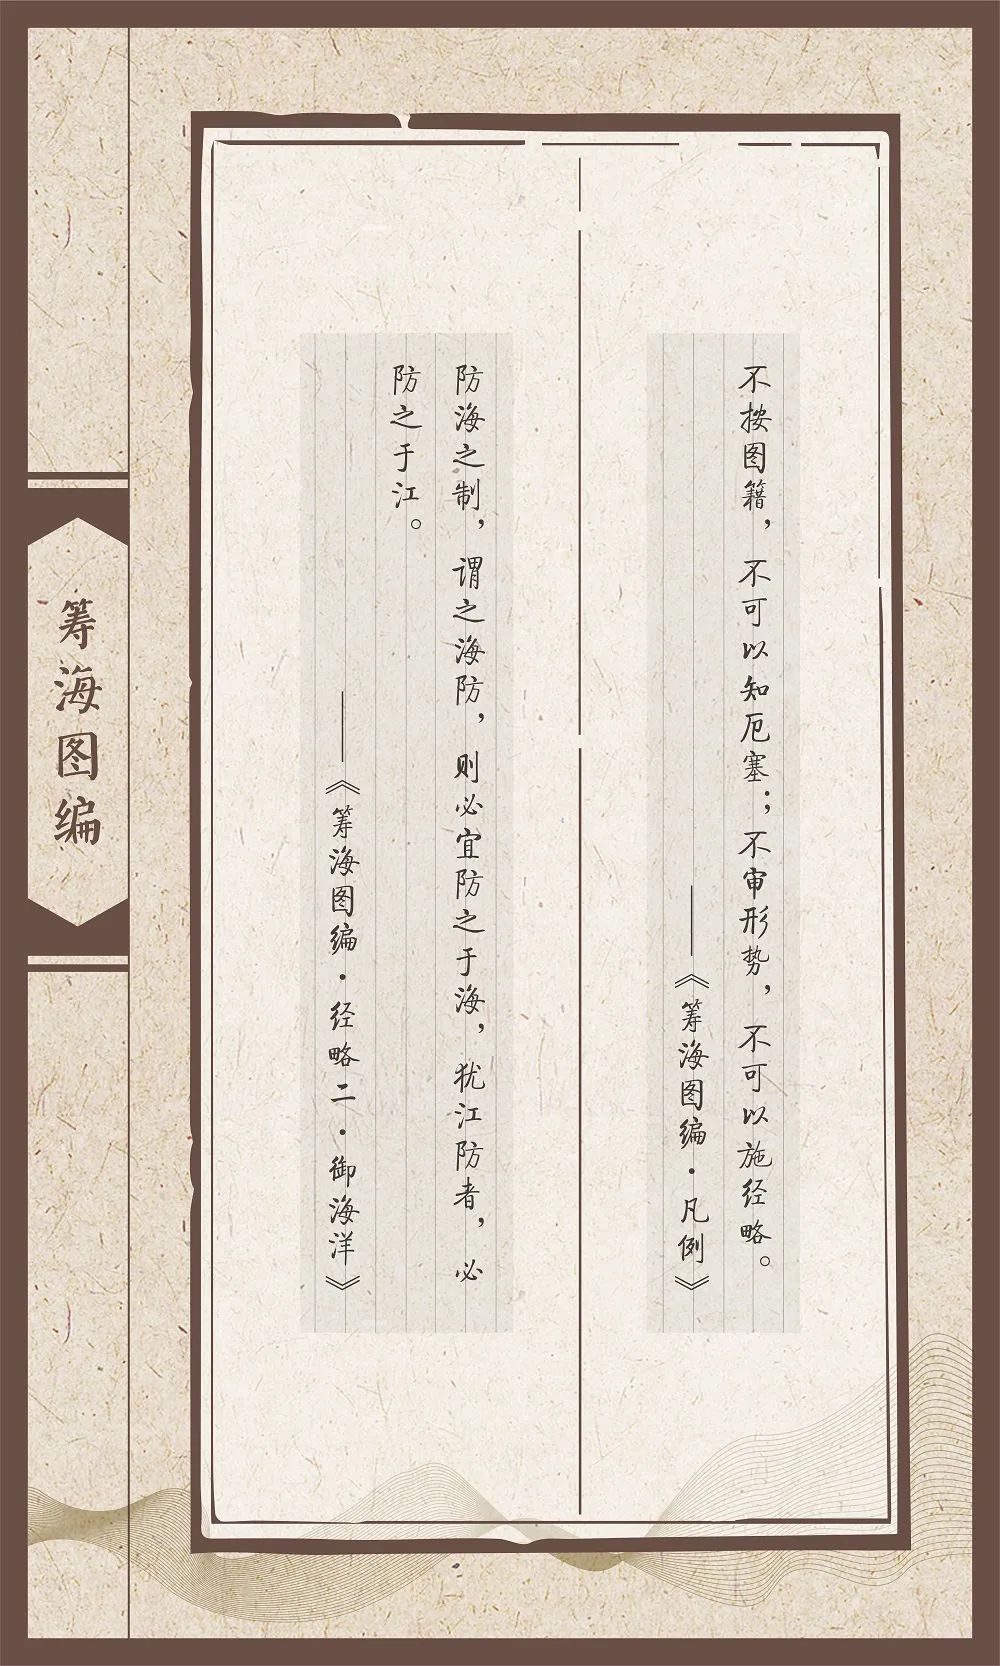 不按图籍，不可以知厄塞；不审形势，不可以施经略。
——《筹海图编·凡例》
防海之制，谓之海防，则必宜防之于海，犹江防者，必
防之于江。
——《筹海图编·经略二·御海洋》
筹海图编